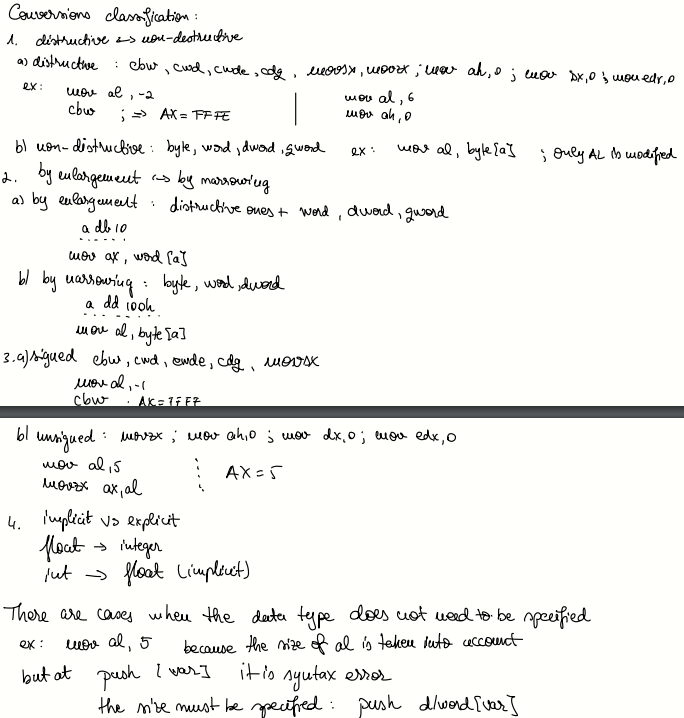 Conversions classification:
1. distructive ↔ non-destructive
a) distructive : cbw, cwd, cwde, cdq, movsx, movzx ; mov ah,0 ; mov dx,0 ; mov edx,0
ex: mov al, -2 | mov al, 6
cbw ; => AX = FFFE | mov ah, 0
b) non-distructive: byte, word, dword, qword ex: mov al, byte[a] ; only AL is modified
2. by enlargement ↔ by narrowing
a) by enlargement : distructive ones + word, dword, qword
a db 10
.......
mov ax, word [a]
b) by narrowing : byte, word, dword
a dd 100h
.......
mov al, byte[a]
3. a) signed cbw, cwd, cwde, cdq, movsx
mov al, -1
cbw ; AX = FFFF
b) unsigned : movzx ; mov ah,0 ; mov dx,0 ; mov edx,0
mov al, 5
movzx ax, al AX = 5
4. implicit vs explicit
float → integer
int → float (implicit)
There are cases when the data type does not need to be specified
ex: mov al, 5 because the size of al is taken into account
but at push [var] it is syntax error
the size must be specified : push d/word[var]